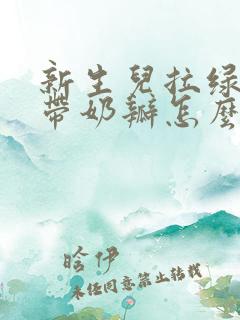 新生兒拉绿
帶奶瓣怎麼
晗伊
未经同意禁止转载